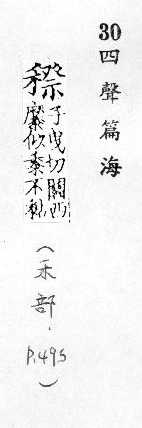 30四聲篇海
子曳切關西
糜似黍不
(禾部, P.495)